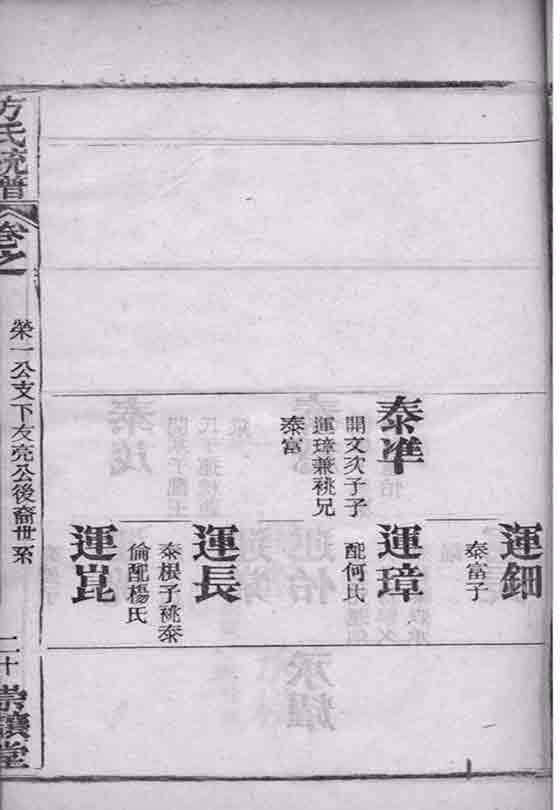 運鈿
泰富子
泰準
開文次子子
運璋兼祧兄
泰富
運璋
配何氏
運長
泰根子祧泰
倫配楊氏
運崑
方氏統譜
卷之
榮一公支下友亮公後裔世系
二十
崇讓堂